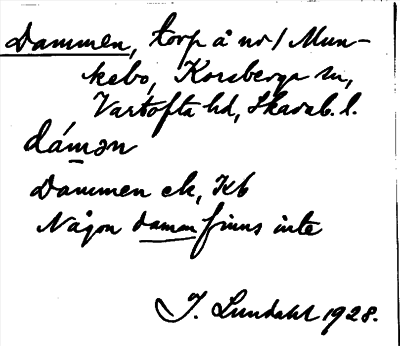 Dammen, torp å nr 1 Mun-
kebo, Korsberga sn,
Vartofta hd, Skarab. l.
dámən
Dammen ek, Kb
Någon damm finns inte
J. Lundahl 1928.